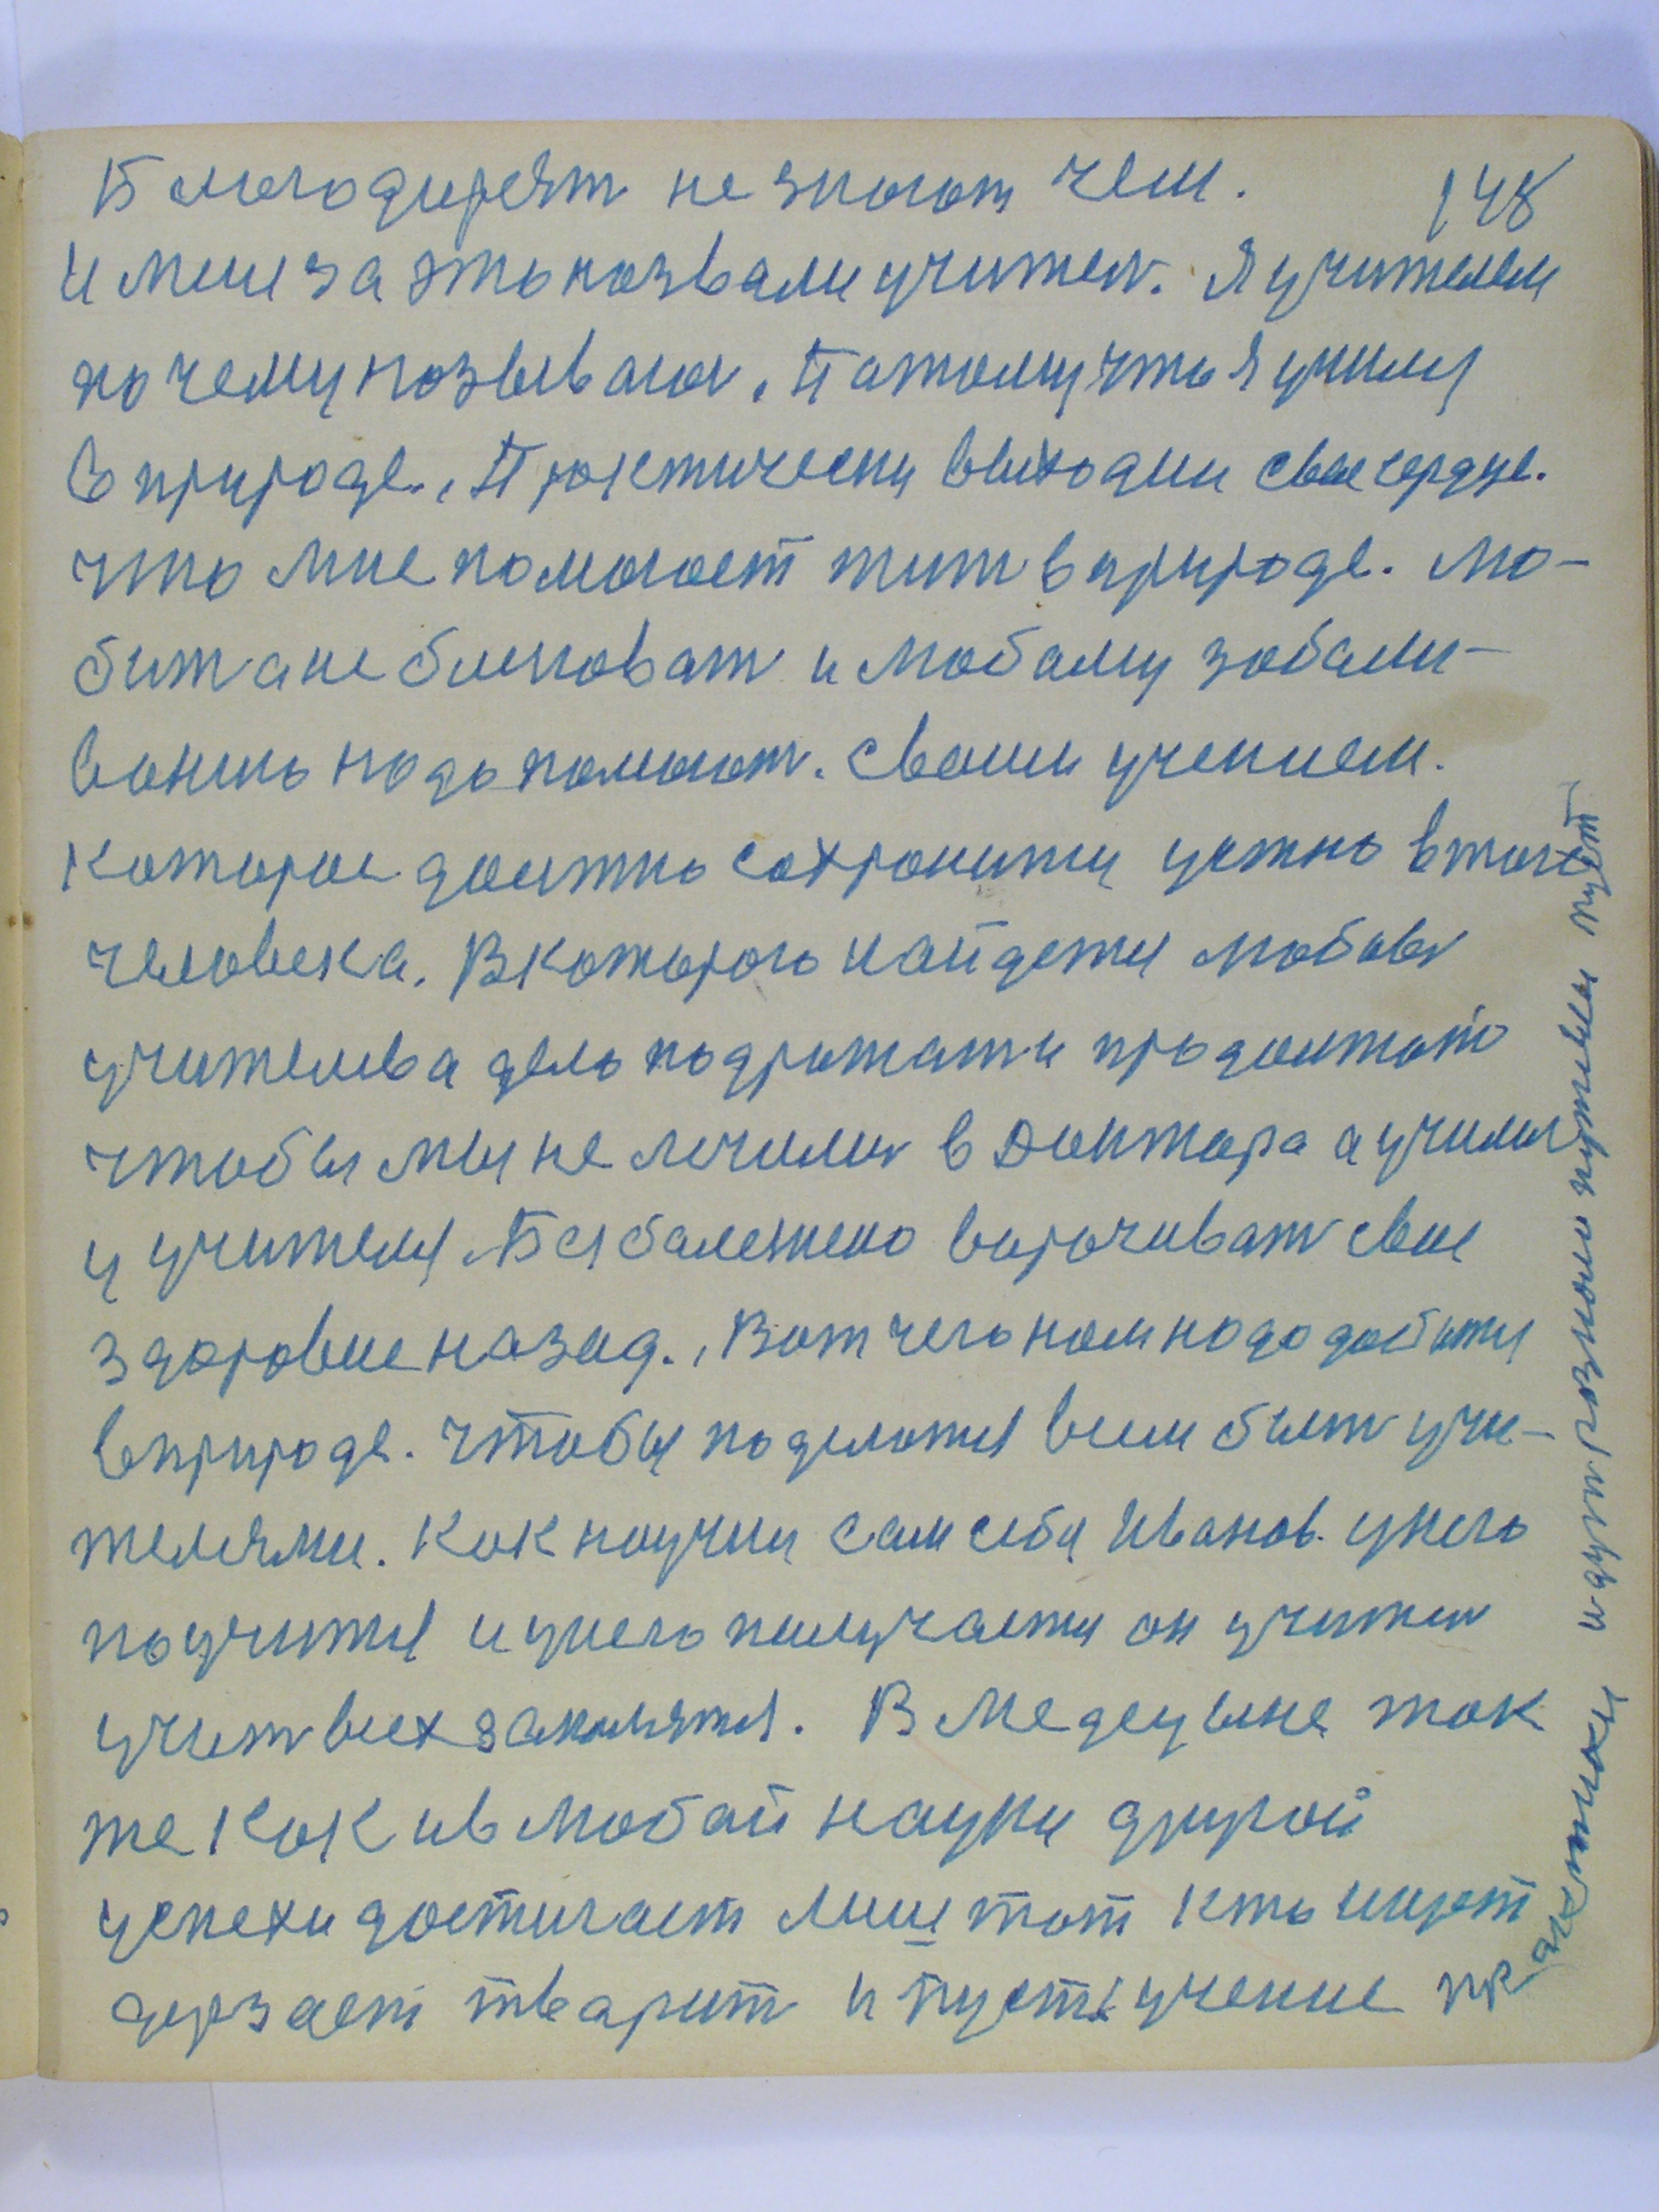 Благодирят не знают чем. 148
И мии за это назвали учител. Я учителем
почему называюс. Патомучто я учился
в природе., Практически выходил свае сердце.
что мне помогает жит в природе. лю-
бит а не блиноват и любому забали-
ванию надо помогат. сваим учением.
Которое должно сохранитца устно в того
человека. В которого найдетця любов
учителева дело подражат и продолжат
чтобы мы не личились в Доктора а училис
у учителя. Без балезнено ворочиват свае
здаровие назад., Вот чего нам надо добитця
в природе. Чтобы поделатся всем быт учи-
телями. Как научил сам себя Иванов. у него
поучится и у него палучаетця он учител
учит всех закалятся. В медецыне так
же как и в любой науки другой
успехи достигает лиш тот кто ищет
дерзает тварит и пуст учение
практики идут разными путями пуст